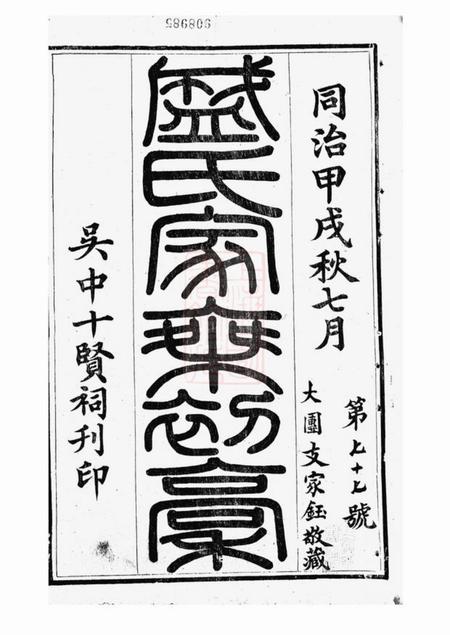 986985
同治甲戌秋七月
第七十七號
大團支家鈺敬藏
盛氏家乘初稾
吳中十賢祠刊印